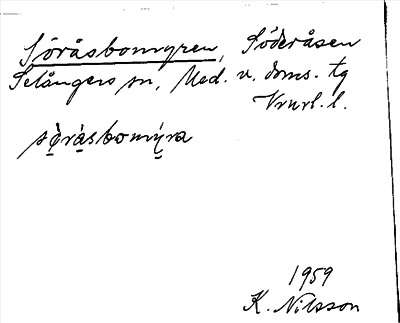 Söråsbomyren, Söderåsen
Selångers sn, Med. v. doms. tg
Vrurl. l.
sò̱rà̱sbomỳ̱ra
1959
K. Nilsson